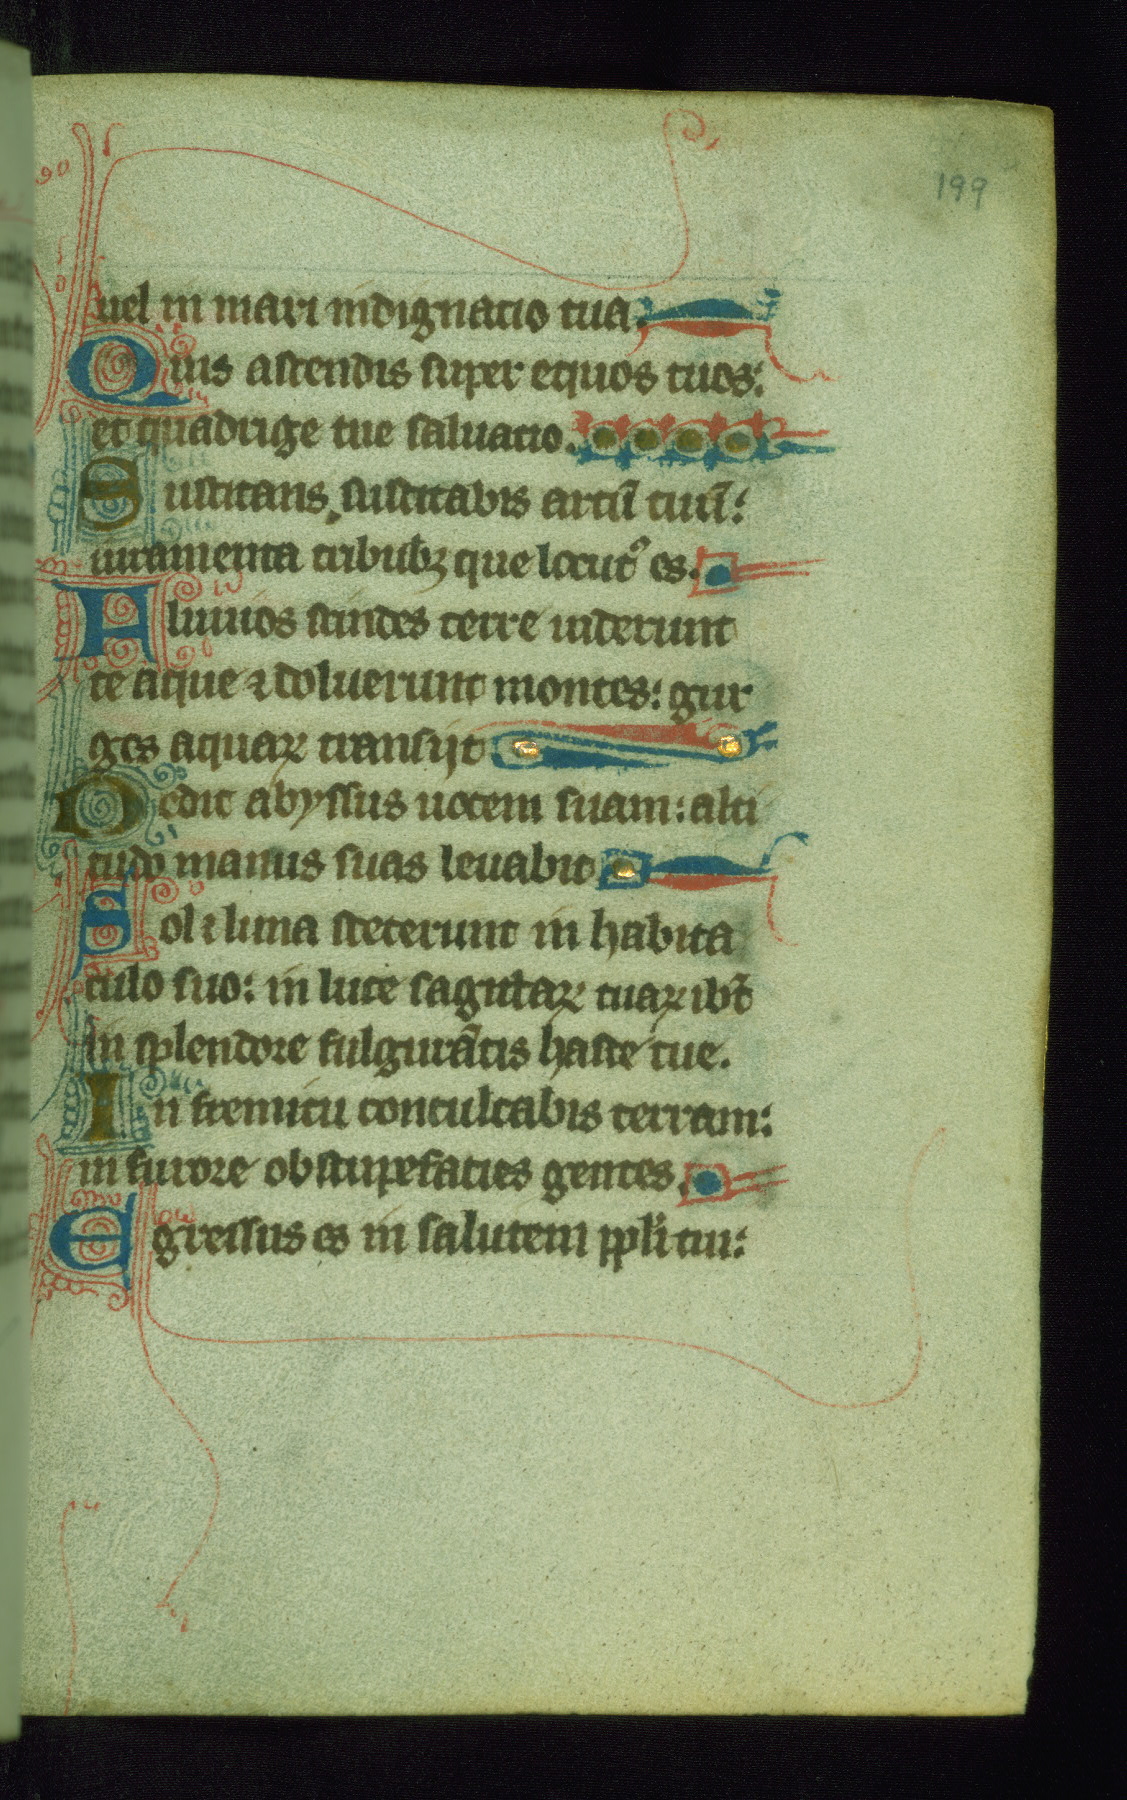 199
uel in mari indignacio tua.
Quis ascendis super equos tuos:
et quadrige tue saluacio.
Suscitans suscitabis arcū tuū:
iuramenta tribubꝫ que locutꝰ es.
Aluuios scindes terre uiderunt
te aque ⁊ doluerunt montes: gur
ges aquaꝝ transijt
Dedit abyssus uocem suam: alti
tudo manus suas leuabit
Sol ⁊ luna steterunt in habita
culo suo: in luce sagittaꝝ tuaꝝ ibūt
in splendore fulgurātis haste tue.
In fremitu conculcabis terram:
in furore obstupefacies gentes.
Egressus es in salutem ppli tui: